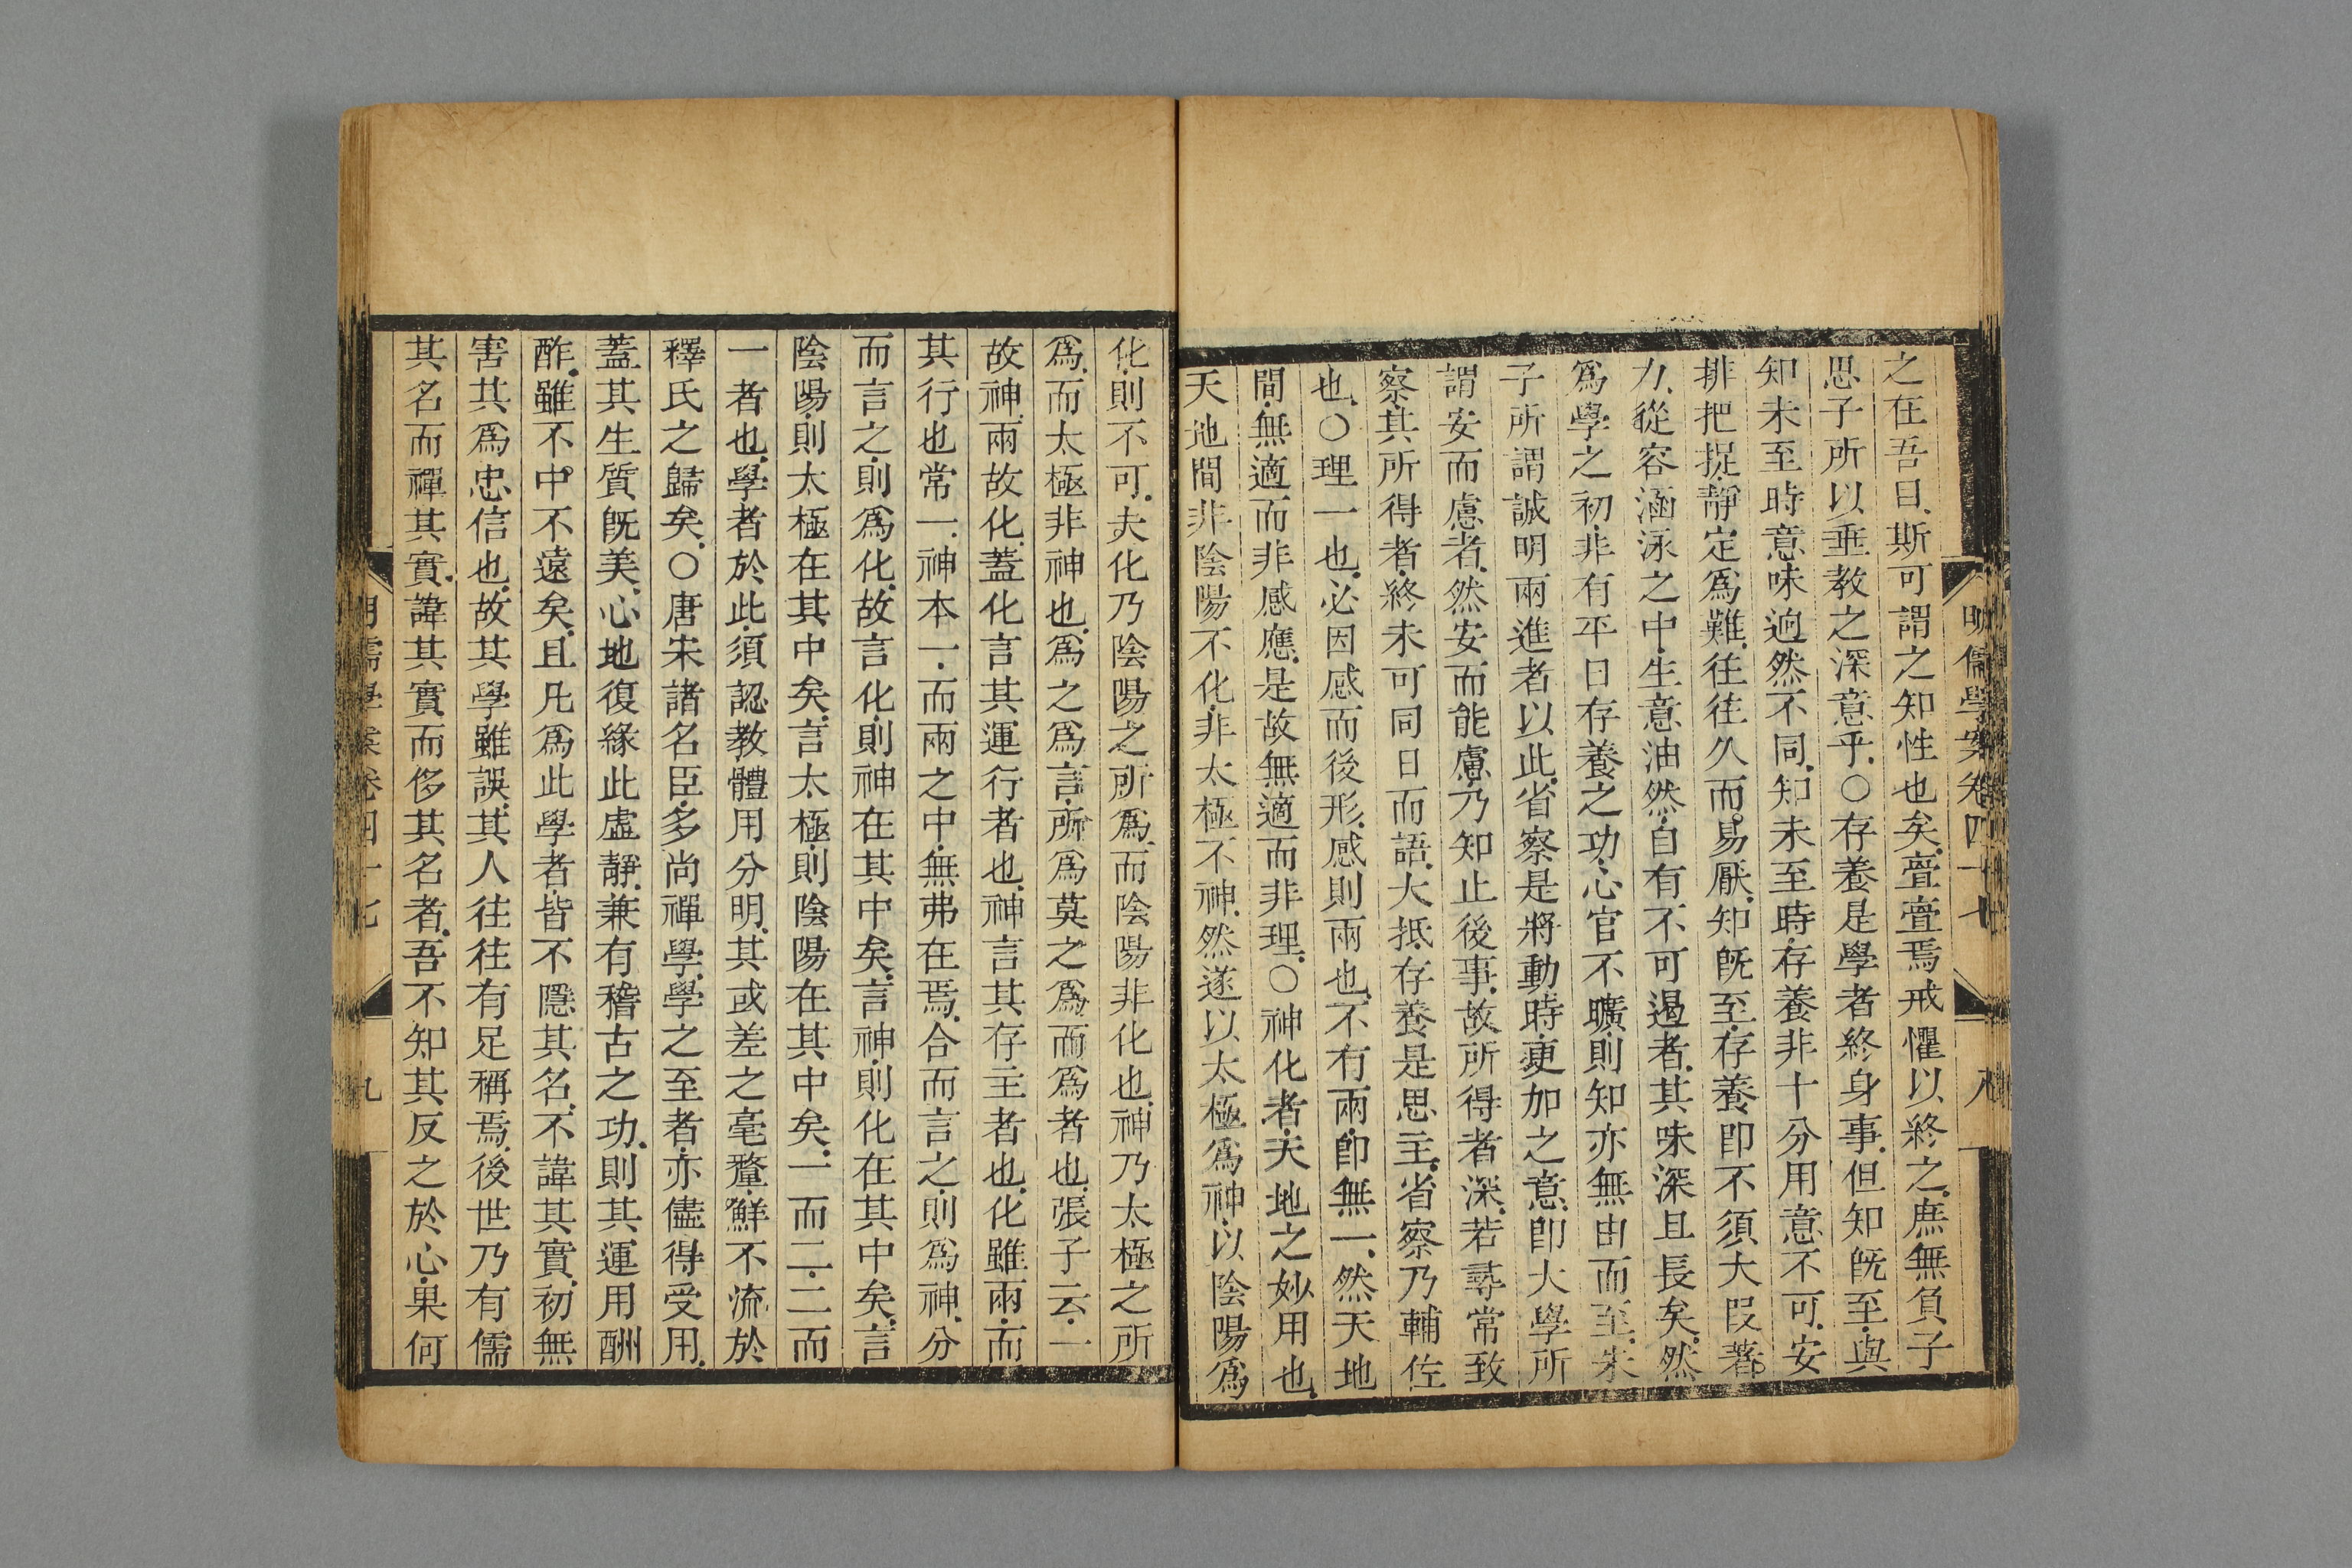 明儒學案卷四十七
八
之在吾目.斯可謂之知性也矣.亹亹焉戒懼以終之.庶無負子
思子所以垂教之深意乎.○存養是學者終身事.但知旣至.與
知未至時意味逈然不同.知未至時.存養非十分用意不可.安
排把捉.靜定爲難.往往久而易厭.知旣至.存養卽不須大叚著
力.從容涵泳之中.生意油然.自有不可遏者.其味深且長矣.然
爲學之初.非有平日存養之功.心官不曠.則知亦無由而至.朱
子所謂誠明兩進者以此.省察是將動時.更加之意.卽大學所
謂安而慮者.然安而能慮.乃知止後事.故所得者深.若尋常致
察.其所得者.終未可同日而語.大抵.存養是思主.省察乃輔佐
也.○理一也.必因感而後形.感則兩也.不有兩.卽無一.然天地
間.無適而非感應.是故無適而非理.○神化者.天地之妙用也.
天地間非陰陽不化.非太極不神.然遂以太極爲神.以陰陽爲
化則不可.夫化乃陰陽之所爲.而陰陽非化也.神乃太極之所
爲.而太極非神也.爲之爲言.所爲莫之爲而爲者也.張子云.一
故神.兩故化.蓋化言其運行者也.神言其存主者也.化雖兩.而
其行也常一.神本一.而兩之中.無弗在焉.合而言之.則爲神.分
而言之.則爲化.故言化.則神在其中矣.言神.則化在其中矣.言
陰陽.則太極在其中矣.言太極.則陰陽在其中矣.一而二.二而
一者也.學者於此.須認教體用分明.其或差之毫釐.鮮不流於
釋氏之歸矣.○唐宋諸名臣.多尚禪學.學之至者.亦儘得受用.
蓋其生質旣美.心地復緣此虛靜.兼有稽古之功.則其運用酬
酢.雖不中.不遠矣.且凡爲此學者.皆不隱其名.不諱其實.初無
害其爲忠信也.故其學雖誤.其人往往有足稱焉.後世乃有儒
其名而禪其實.諱其實而侈其名者.吾不知其反之於心.果何
明儒學案卷四十七
九